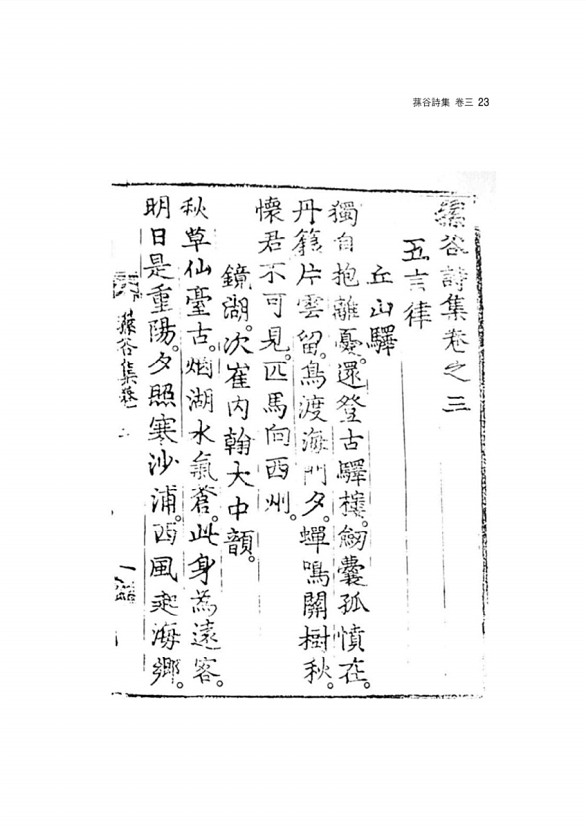 蓀谷詩集 卷三 23
蓀谷詩集卷之三
五言律
丘山驛
獨自抱離憂。還登古驛樓。劒囊孤憤在。
丹籙片雲留。鳥渡海門夕。蟬鳴關樹秋。
懷君不可見。匹馬向西州。
鏡湖。次崔內翰大中韻。
秋草仙臺古。烟湖水氣蒼。此身爲遠客。
明日是重陽。夕照寒沙浦。西風起海鄉。
蓀谷集卷
一